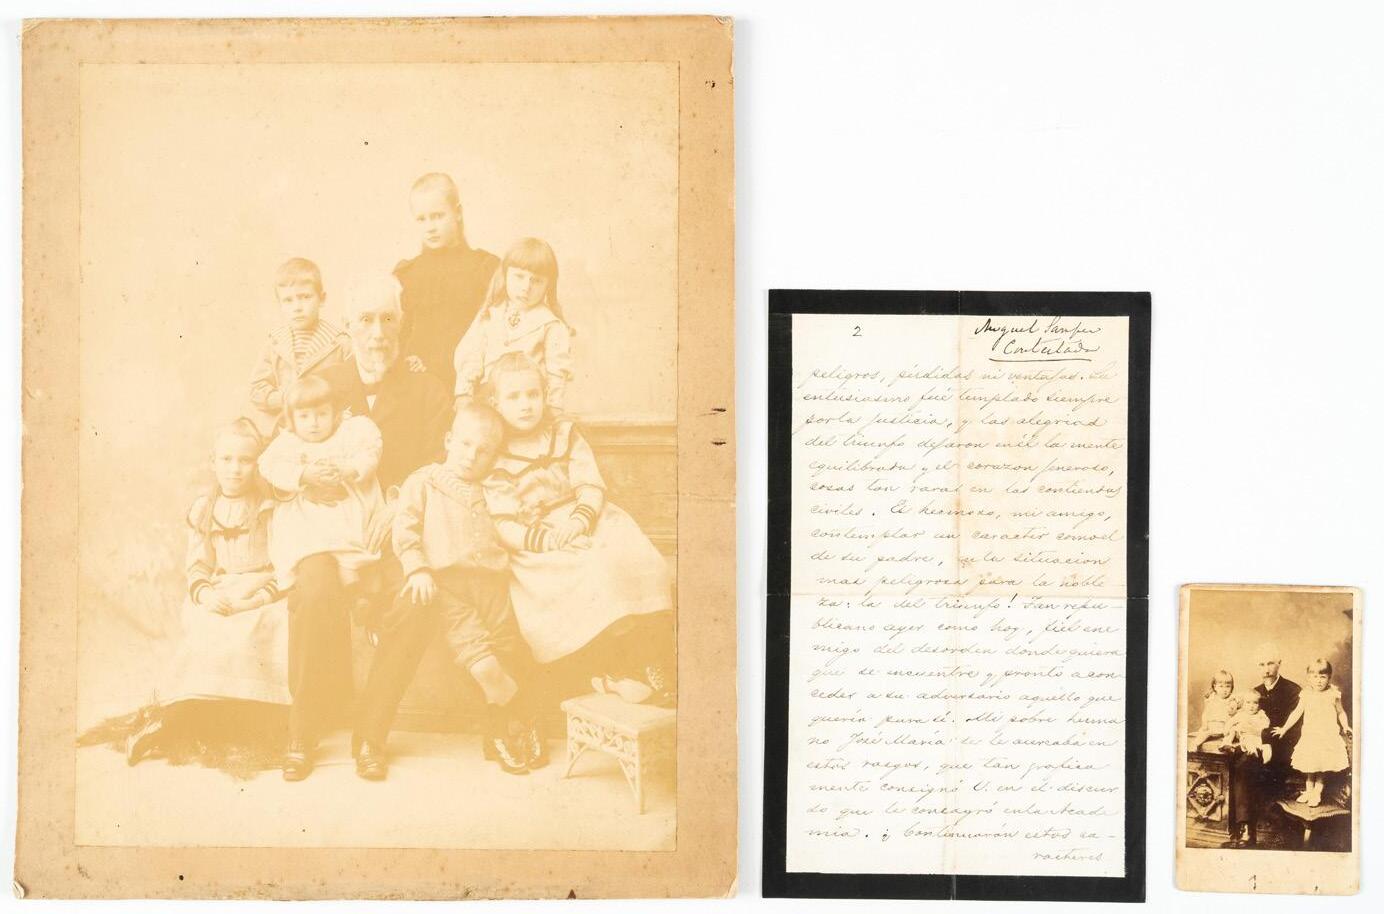 2
Miguel Samper
Contestada
peligros, pérdidas ni ventajas. Su
entusiasmo fué templado siempre
por la justicia, y las alegrias
del triunfo dejaron en él la mente
equilibrada y el corazon generoso,
cosas tan raras en las contiendas
civiles. Es hermoso, mi amigo,
contemplar un caracter como el
de su padre, en la situacion
mas peligrosa para la noble-
za: la del triunfo! Tan repu-
blicano ayer como hoy, fiel ene
migo del desorden donde quiera
que se encuentre y pronto a con-
ceder a su adversario aquello que
queria para sí. Mi pobre herma
no José María se le acercaba en
estos rasgos, que tan grafica
mente consignó U. en el discur
so que le consagró en la Acade
mia. ¿Continuarán estos ca-
racteres